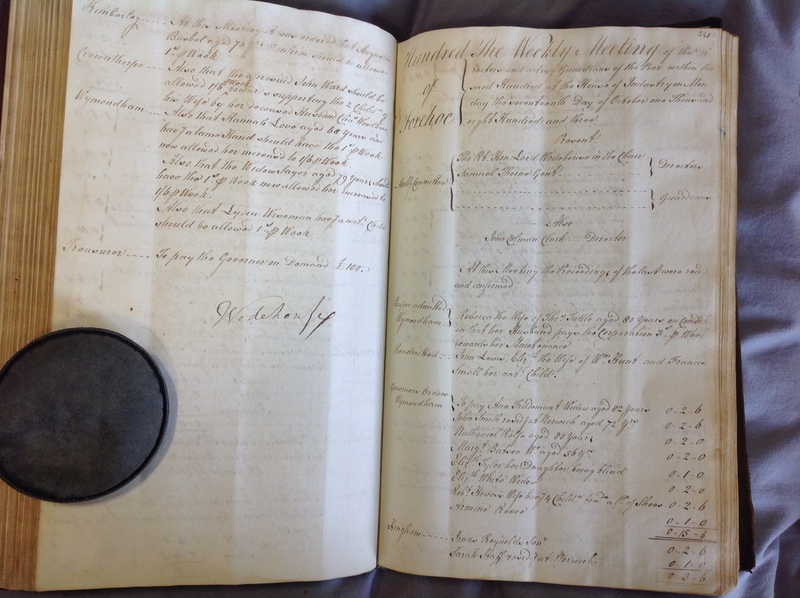 Kimberley At this Meeting it was ordered that
Bushel aged 7 should be allowed
1s p Week
Crownthorpe Also that the aforesaid John Ward should be
allowed 1/6 p Week for supporting the 2 Child.n of
his Wife by her deceased Husband
Wymondham Also that Hannah Love aged 68 Years and
hav.g a lame Hand should have the 1s p Week
now allowed her increased to 1/6 p Week
Also that the Widow Sayer aged 79 Years should
have the 1s p Week now allowed her increased to
1/6 p Week.
Also that Lydia Wiseman hav.g a nat.l Child
should be allowed 1s p Week
Treasurer To pay the Governor on Demand £100.
Wodehouse
241
Hundred of Forehoe
The Weekly Meeting of the Di
rectors and acting Guardians of the Poor within the
said Hundred at the House of Industry on Mon
day the seventeenth Day of October one Thousand
eight Hundred and three
Present
The Rt. Hon Lord Wodehouse in the Chair
Samuel Thorne Gent.
Directors
Week Committee
Guardians
Also
John Colman Clerk Director
At this Meeting the Proceedings of the last were read
and confirmed,
Pauper admitted
Wymondham
Rebecca the Wife of Tho.s Tuttle aged 80 Years on Condi
tion that her Husband pays the Corporation 3s p Week
towards her Maintenance
John Lown, Eliz.th the Wife of Wm. Hunt and Frances
Small her nat.l Child.
Governors Orders
Wymondham
To pay Ann Widow aged 82 Years 0-2-6
John Smith resid.g at Norwich aged 72 Yrs 0-2-6
Nathaniel Rolfe aged 80 Years 0-2-0
Marg.t Batson Wo. aged 56 Yrs 0-2-0
Eliz.th Tyler her Daughter being blind 0-1-0
Eliz.th White Widow 0-2-0
Rob.t Howes Wife hav.g 4 Child.n a P.r of Shoes 0-2-6
Jemima Reeve 0-1-0
0-15-6
Hingham Isaac Reynolds Sen.r 0-2-6
Sarah Staff resid.g at Norwich 0-1-0
0-3-6